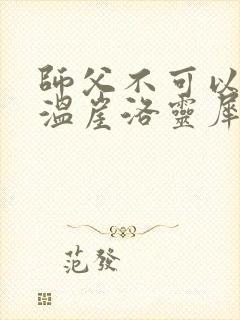 師父不可以
溫崖洛靈犀
范發